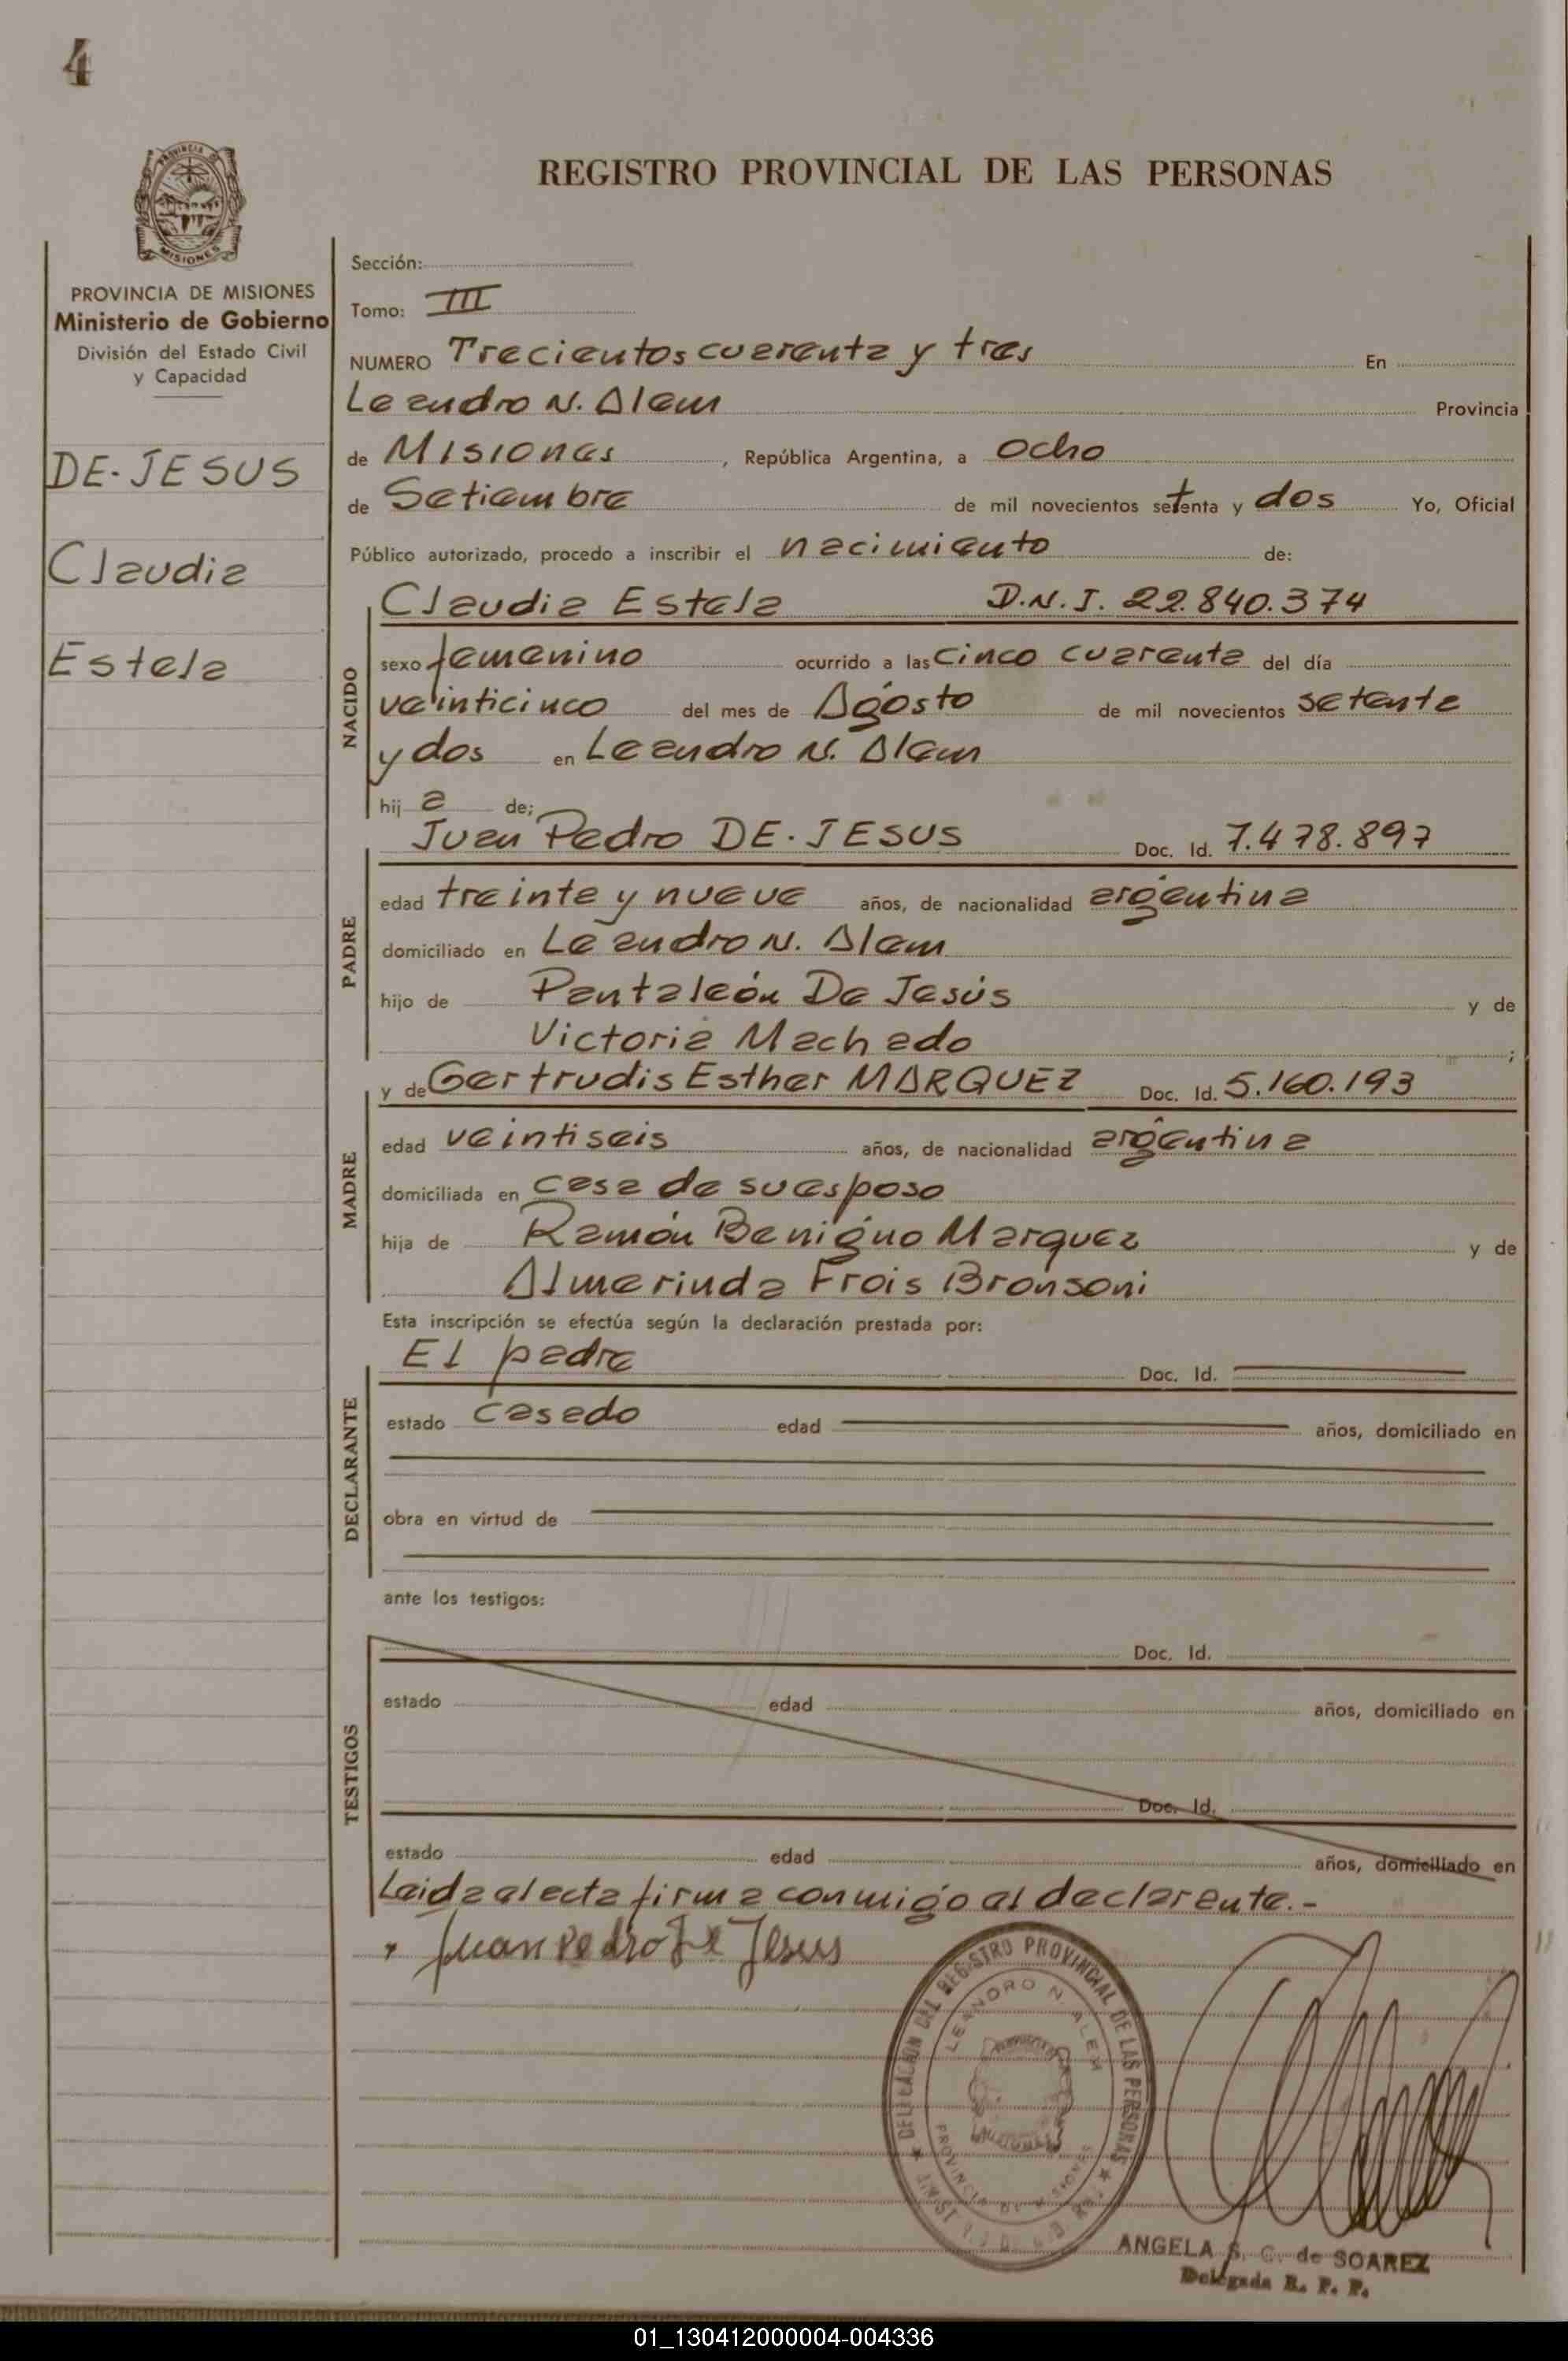 4
REGISTRO PROVINCIAL DE LAS PERSONAS
PROVINCIA DE MISIONES
Ministerio de Gobierno
División del Estado Civil
y Capacidad
DE-JESUS
Claudia
Estela
Sección:
Tomo: III
NUMERO Trecientos cuarenta y tres En
Leandro N. Alem Provincia
de Misiones, República Argentina, a Ocho
de Setiembre de mil novecientos setenta y dos Yo, Oficial
Público autorizado, procedo a inscribir el nacimiento de:
Claudia Estela D.N.I. 22.840.374
NACIDO
sexo femenino ocurrido a las cinco cuarenta del día
veinticinco del mes de Agosto de mil novecientos setenta
y dos en Leandro N. Alem
hij a de;
Juan Pedro DE-JESUS Doc. Id. 7.478.897
PADRE
edad treinta y nueve años, de nacionalidad argentina
domiciliado en Leandro N. Alem
hijo de Pantaleón De Jesús y de
Victoria Machado ;
y de Gertrudis Esther MARQUEZ Doc. Id. 5.160.193
MADRE
edad veintiseis años, de nacionalidad argentina
domiciliada en casa de su esposo
hija de Ramón Benigno Marquez y de
Almerinda Frois Bronsoni
Esta inscripción se efectúa según la declaración prestada por:
El padre Doc. Id.
DECLARANTE
estado casado edad años, domiciliado en
obra en virtud de
ante los testigos:
TESTIGOS
Doc. Id.
estado edad años, domiciliado en
Doc. Id.
estado edad años, domiciliado en
Leida el acta firma conmigo el declarante.-
Juan Pedro De Jesus
DELEGACION DEL REGISTRO PROVINCIAL DE LAS PERSONAS
LEANDRO N. ALEM
PROVINCIA DE MISIONES
ANGELA S. C. de SOAREZ
Delegada R. P. P.
01_130412000004-004336